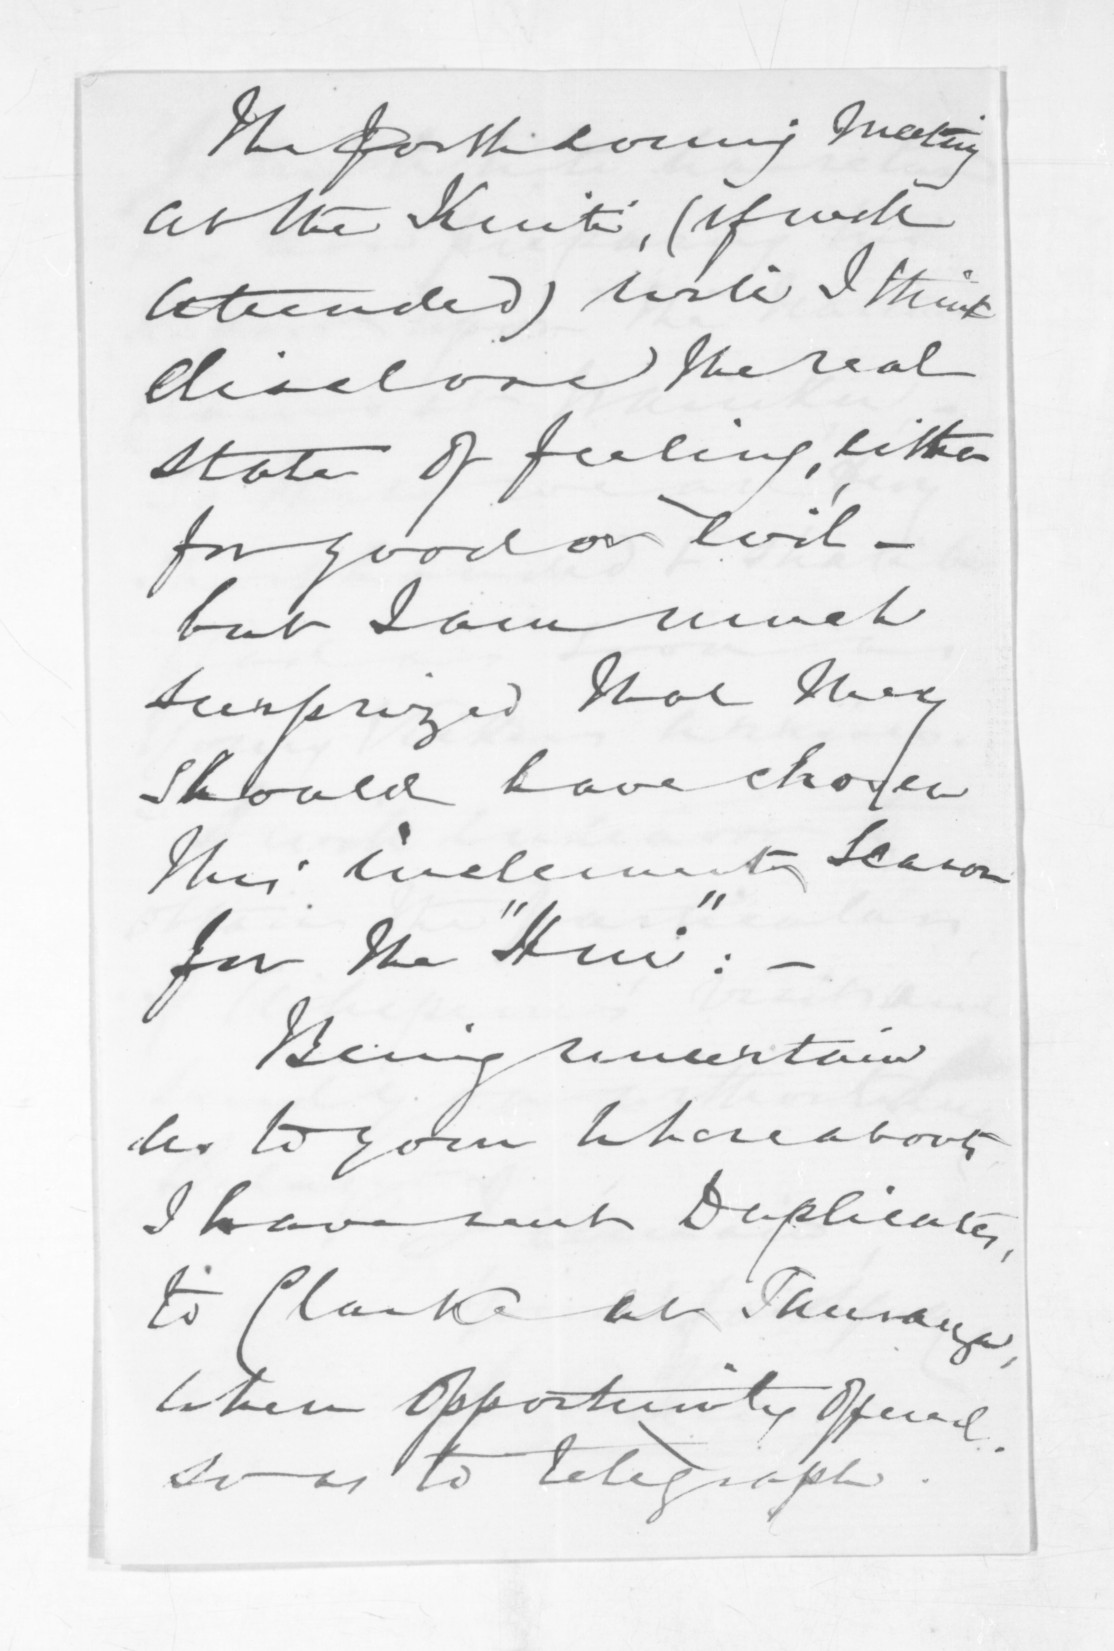 The forthcoming Meeting
at the Kuiti, (if well
attended) will I think
disclose the real
state of feeling, either
for good or evil -
but I am much
surprized that they
should have chosen
this inclement Season
for the "Hui": -
Being uncertain
as to your whereabouts
I have sent Duplicates,
to Clarke at Tauranga,
when opportunity offered.
so as to telegraph.